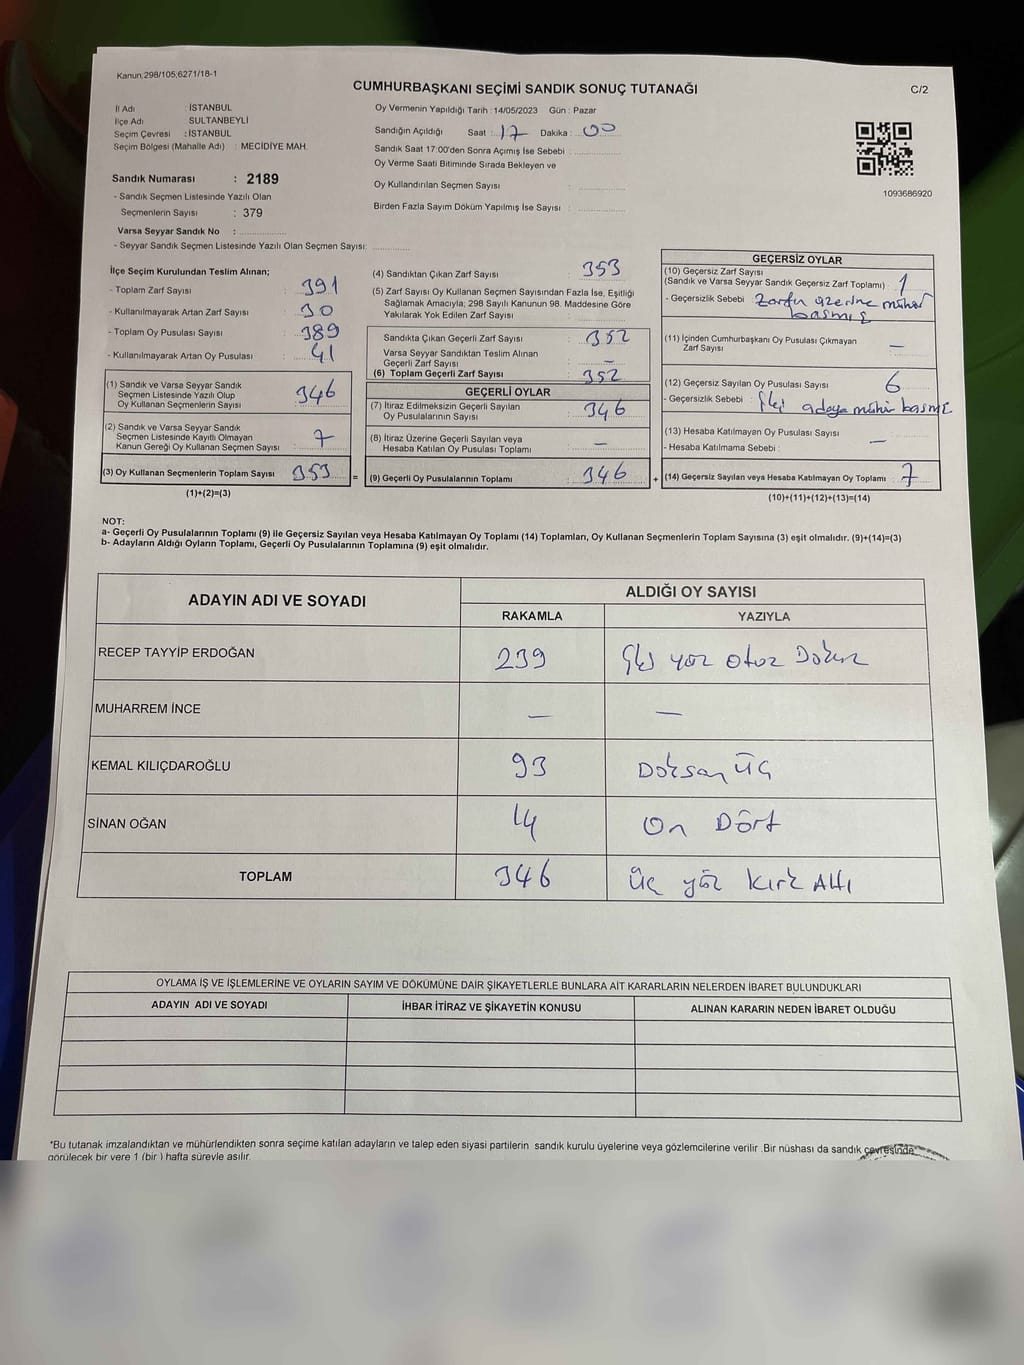 Kanun,298/105,6271/18-1
CUMHURBAŞKANI SEÇİMİ SANDIK SONUÇ TUTANAĞI
C/2
İl Adı : İSTANBUL
İlçe Adı SULTANBEYLİ
Seçim Çevresi : İSTANBUL
Seçim Bölgesi (Mahalle Adı) : MECİDİYE MAH.
Sandık Numarası : 2189
- Sandık Seçmen Listesinde Yazılı Olan
Seçmenlerin Sayısı : 379
Varsa Seyyar Sandık No :
- Seyyar Sandık Seçmen Listesinde Yazılı Olan Seçmen Sayısı:
Oy Vermenin Yapıldığı Tarih : 14/05/2023 Gün : Pazar
Sandığın Açıldığı Saat : 17 Dakika : 00
Sandık Saat 17:00'den Sonra Açımış İse Sebebi :
Oy Verme Saati Bitiminde Sırada Bekleyen ve
Oy Kullandırılan Seçmen Sayısı :
Birden Fazla Sayım Döküm Yapılmış İse Sayısı :
1093686920
İlçe Seçim Kurulundan Teslim Alınan;
- Toplam Zarf Sayısı : 391
- Kullanılmayarak Artan Zarf Sayısı : 30
- Toplam Oy Pusulası Sayısı : 389
- Kullanılmayarak Artan Oy Pusulası : 41
(1) Sandık ve Varsa Seyyar Sandık
Seçmen Listesinde Yazılı Olup
Oy Kullanan Seçmenlerin Sayısı : 346
(2) Sandık ve Varsa Seyyar Sandık
Seçmen Listesinde Kayıtlı Olmayan
Kanun Gereği Oy Kullanan Seçmen Sayısı : 7
(3) Oy Kullanan Seçmenlerin Toplam Sayısı 353
(1)+(2)=(3)
(4) Sandıktan Çıkan Zarf Sayısı : 353
(5) Zarf Sayısı Oy Kullanan Seçmen Sayısından Fazla İse, Eşitliği
Sağlamak Amacıyla; 298 Sayılı Kanunun 98. Maddesine Göre
Yakılarak Yok Edilen Zarf Sayısı :
Sandıkta Çıkan Geçerli Zarf Sayısı : 352
Varsa Seyyar Sandıktan Teslim Alınan
Geçerli Zarf Sayısı : –
(6) Toplam Geçerli Zarf Sayısı : 352
GEÇERLİ OYLAR
(7) İtiraz Edilmeksizin Geçerli Sayılan
Oy Pusulalarının Sayısı : 346
(8) İtiraz Üzerine Geçerli Sayılan veya
Hesaba Katılan Oy Pusulası Toplamı : –
= (9) Geçerli Oy Pusulalarının Toplamı : 346
GEÇERSİZ OYLAR
(10) Geçersiz Zarf Sayısı
(Sandık ve Varsa Seyyar Sandık Geçersiz Zarf Toplamı) : 1
- Geçersizlik Sebebi : Zarfın üzerine mühür
basmış
(11) İçinden Cumhurbaşkanı Oy Pusulası Çıkmayan
Zarf Sayısı : –
(12) Geçersiz Sayılan Oy Pusulası Sayısı 6
- Geçersizlik Sebebi : İki adaya mühür basma
(13) Hesaba Katılmayan Oy Pusulası Sayısı –
- Hesaba Katılmama Sebebi :
+ (14) Geçersiz Sayılan veya Hesaba Katılmayan Oy Toplamı : 7
(10)+(11)+(12)+(13)=(14)
NOT:
a- Geçerli Oy Pusulalarının Toplamı (9) ile Geçersiz Sayılan veya Hesaba Katılmayan Oy Toplamı (14) Toplamları, Oy Kullanan Seçmenlerin Toplam Sayısına (3) eşit olmalıdır. (9)+(14)=(3)
b- Adayların Aldığı Oyların Toplamı, Geçerli Oy Pusulalarının Toplamına (9) eşit olmalıdır.
ADAYIN ADI VE SOYADI ALDIĞI OY SAYISI
RAKAMLA YAZIYLA
RECEP TAYYİP ERDOĞAN 239 İki yüz otuz Dokuz
MUHARREM İNCE – –
KEMAL KILIÇDAROĞLU 93 Doksan üç
SİNAN OĞAN 14 On Dört
TOPLAM 346 üç yüz kırk Altı
OYLAMA İŞ VE İŞLEMLERİNE VE OYLARIN SAYIM VE DÖKÜMÜNE DAİR ŞİKAYETLERLE BUNLARA AİT KARARLARIN NELERDEN İBARET BULUNDUKLARI
ADAYIN ADI VE SOYADI İHBAR İTİRAZ VE ŞİKAYETİN KONUSU ALINAN KARARIN NEDEN İBARET OLDUĞU
*Bu tutanak imzalandıktan ve mühürlendikten sonra seçime katılan adayların ve talep eden siyasi partilerin sandık kurulu üyelerine veya gözlemcilerine verilir .Bir nüshası da sandık çevresinde
görülecek bir yere 1 (bir ) hafta süreyle asılır.